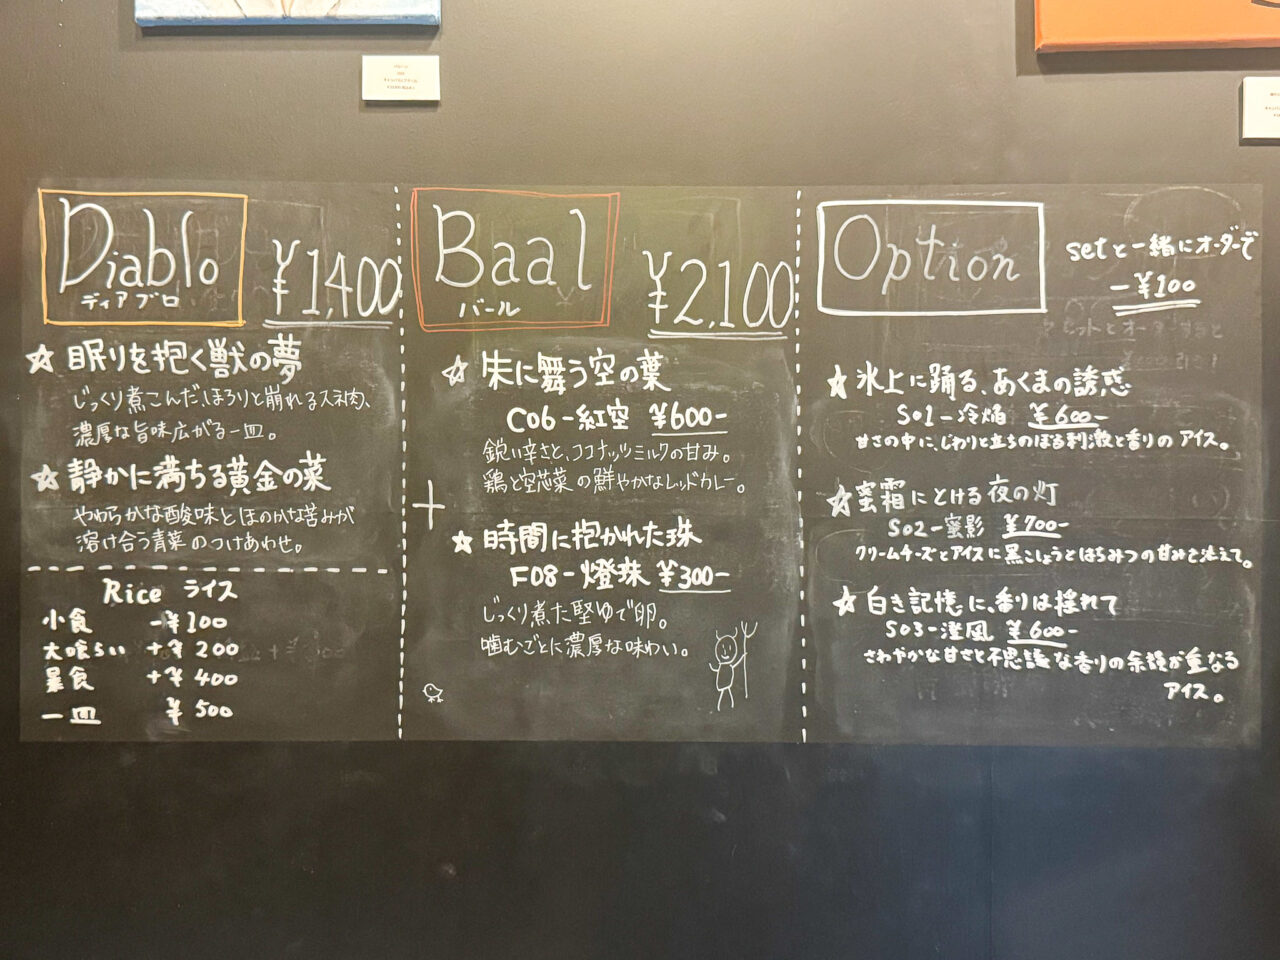 Diablo
ディアブロ
¥1,400
☆ 眠りを抱く獣の夢
じっくり煮こんだ、ほろりと崩れるスネ肉、
濃厚な旨味広がる一皿。
☆ 静かに満ちる黄金の菜
やわらかな酸味とほのかな苦みが
溶け合う青菜のつけあわせ。
Rice ライス
小食 -¥100
大喰らい +¥200
暴食 +¥400
一皿 ¥500
Baal
バール
¥2,100
☆ 朱に舞う空の葉
C06-紅空 ¥600-
鋭い辛さと、ココナッツミルクの甘み。
鶏と空芯菜の鮮やかなレッドカレー。
+
☆ 時間に抱かれた珠
F08-燈珠 ¥300-
じっくり煮た堅ゆで卵。
噛むごとに濃厚な味わい。
Option
setと一緒にオーダーで
-¥100
☆ 氷上に踊る、あくまの誘惑
S01-冷焔 ¥600-
甘さの中に、じわりと立ちのぼる刺激と香りのアイス。
☆ 蜜霜にとける夜の灯
S02-蜜影 ¥700-
クリームチーズとアイスに黒こしょうとはちみつの甘みを添えて。
☆ 白き記憶に、香りは揺れて
S03-澄風 ¥600-
さわやかな甘さと不思議な香りの余韻が重なる
アイス。